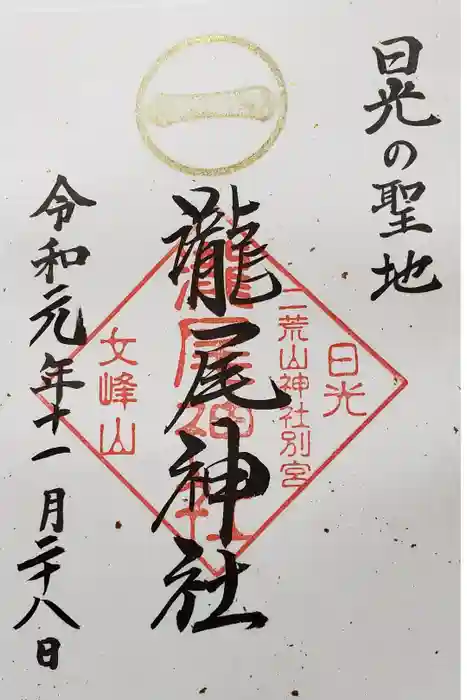 日光の聖地
一
瀧尾神社
瀧尾神社
日光
二荒山神社別宮
女峰山
令和元年十一月二十八日